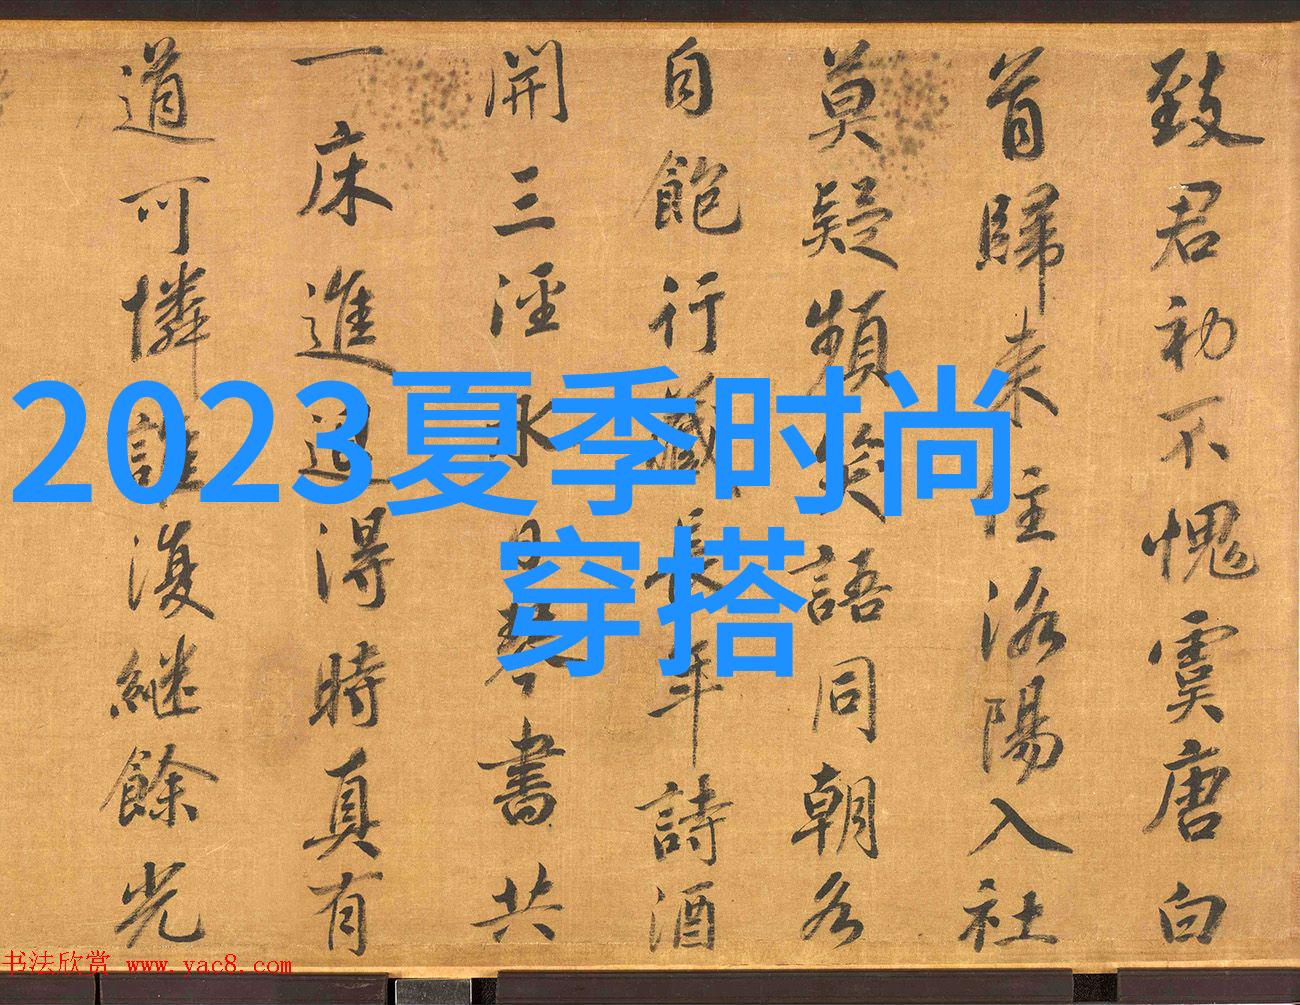 2023夏季时尚
穿搭
致君初不愧虞唐白
首歸来住洛陽入社
莫疑頻笑語同朝各
自飽行藏長年詩酒
開三涇永日琴書共
一床進退得時真有
道可憐誰復継餘光
书法欣赏 www.yac8.com